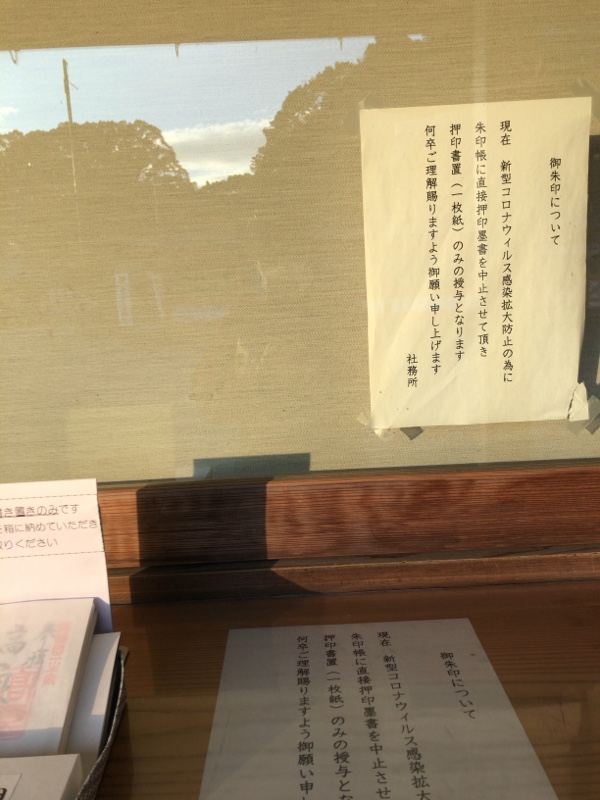 御朱印について
現在 新型コロナウィルス感染拡大防止の為に
朱印帳に直接押印墨書を中止させて頂き
押印書置（一枚紙）のみの授与となります
何卒ご理解賜りますよう御願い申し上げます
社務所
き置きのみです
箱に納めていただき
りください
御朱印について
現在 新型コロナウィルス感染拡大
朱印帳に直接押印墨書を中止させ
押印書置（一枚紙）のみの授与とな
何卒ご理解賜りますよう御願い申し